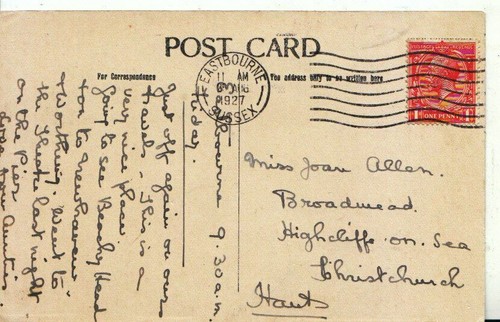 POST CARD
For Correspondence
The address only to be written here
EASTBOURNE
11 AM
AUG
1927
SUSSEX
ONE PENNY
Eastbourne 9.30 a.m.
Friday.
Just off again on our
travels. This is a
very nice place.
Going to see Beachy Head
on to Newhaven
& Worthing. Went to
the Theatre last night
on the Pier
Love from Auntie.
Miss Joan Allen.
Broadmead.
Highcliffe-on-Sea
Christchurch
Hants